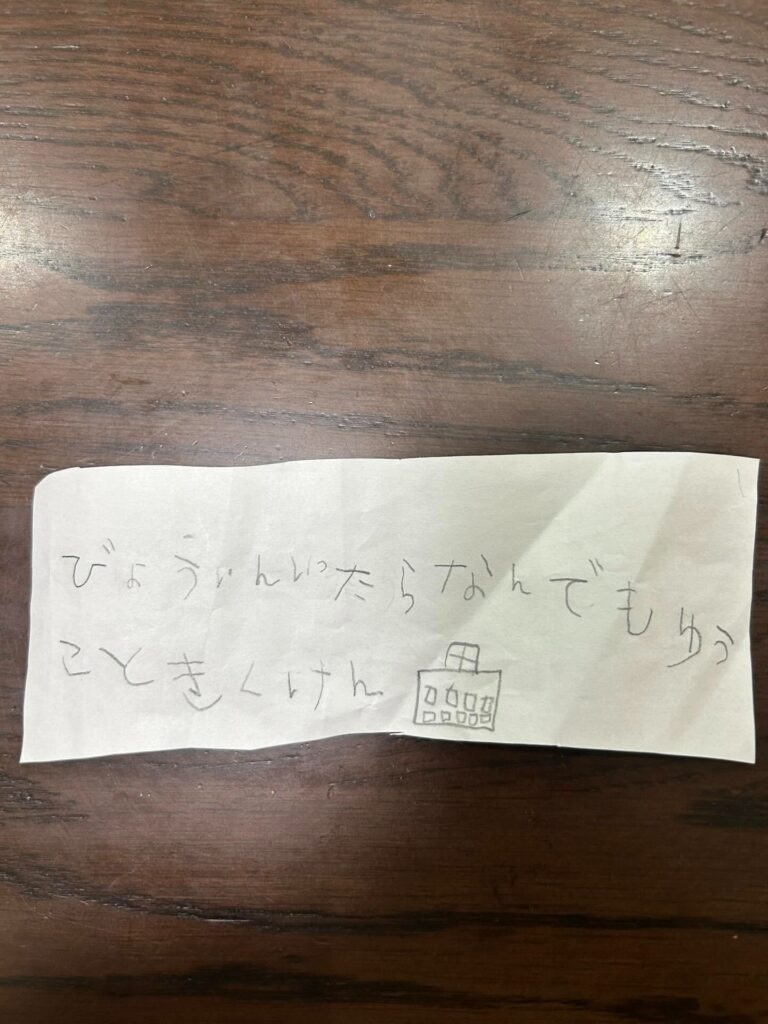 びょういんいったらなんでもゆう
こときくけん